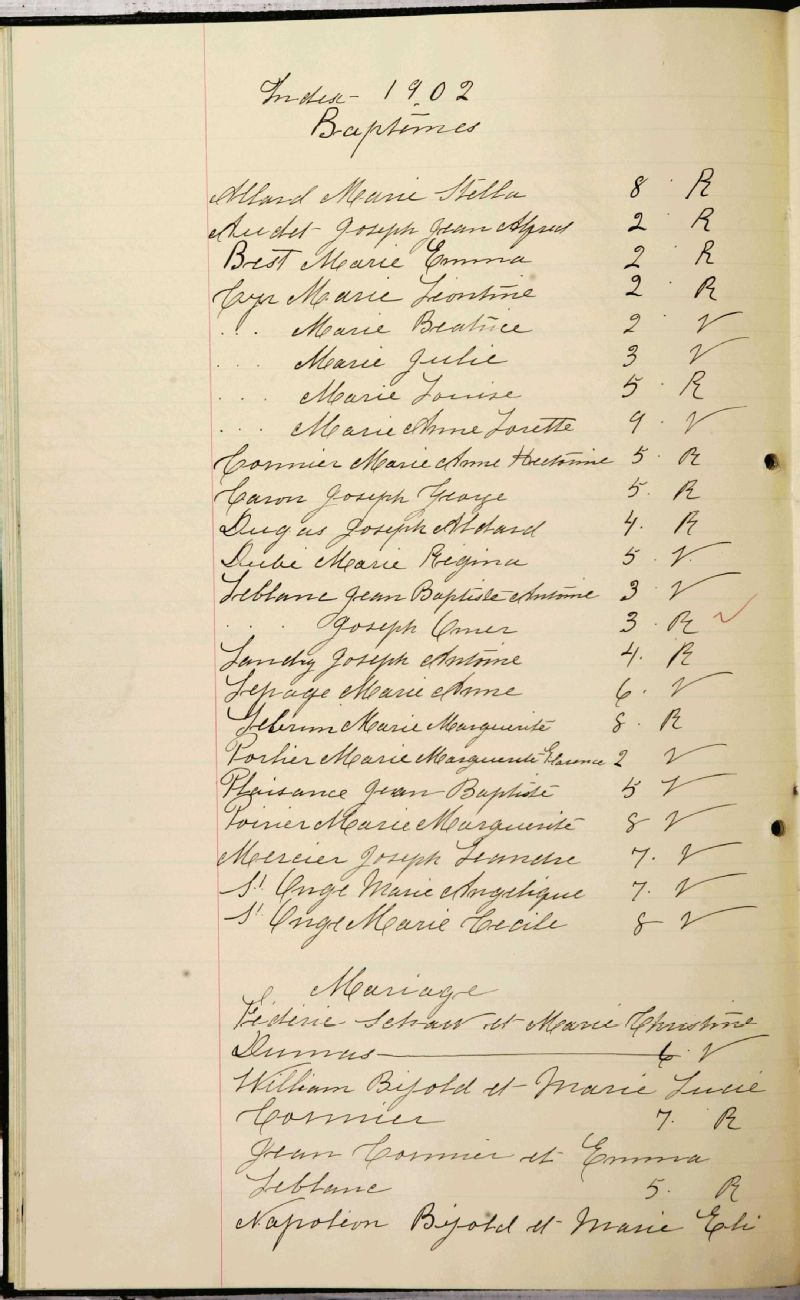 Index - 1902
Baptêmes
Allard Marie Stella 8 R
Audet Joseph Jean Alfred 2 R
Best Marie Emma 2 R
Cyr Marie Léontine 2 R
. . . Marie Beatrice 2 V
. . . Marie Julie 3 V
. . . Marie Louise 5 R
. . . Marie Anne Lorette 9 V
Cormier Marie Anne 5 R
Caron Joseph George 5 R
Dugas Joseph Aldard 4 R
Dubé Marie Regina 5 V
Leblanc Jean Baptiste Antoine 3 V
. . . Joseph Omer 3 R
Landry Joseph Antoine 4 R
Lepage Marie Anne 6 V
Marie Marguerite 8 R
Portier Marie Marguerite Florence 2 V
Plaisance Jean Baptiste 5 V
Poirier Marie Marguerite 8 V
Mercier Joseph Leandre 7 V
St Onge Marie Angelique 7 V
St Onge Marie Cecile 8 V
Mariage
et Marie Christine
Dumas 6 V
William Bijold et Marie Lucie
Cormier 7 R
Jean Cormier et Emma
Leblanc 5 R
Napoléon Bijold et Marie Eli